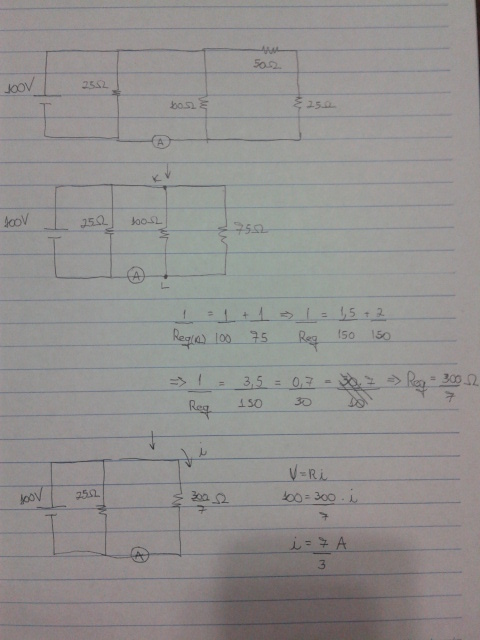 50Ω
100V 25Ω 100Ω 25Ω
A
K
100V 25Ω 100Ω 75Ω
A
L
1/Req(KL) = 1/100 + 1/75 => 1/Req = 1,5/150 + 2/150
=> 1/Req = 3,5/150 = 0,7/30 = => Req = 300/7 Ω
i
100V 25Ω 300/7 Ω
A
V = Ri
100 = 300/7 . i
i = 7/3 A